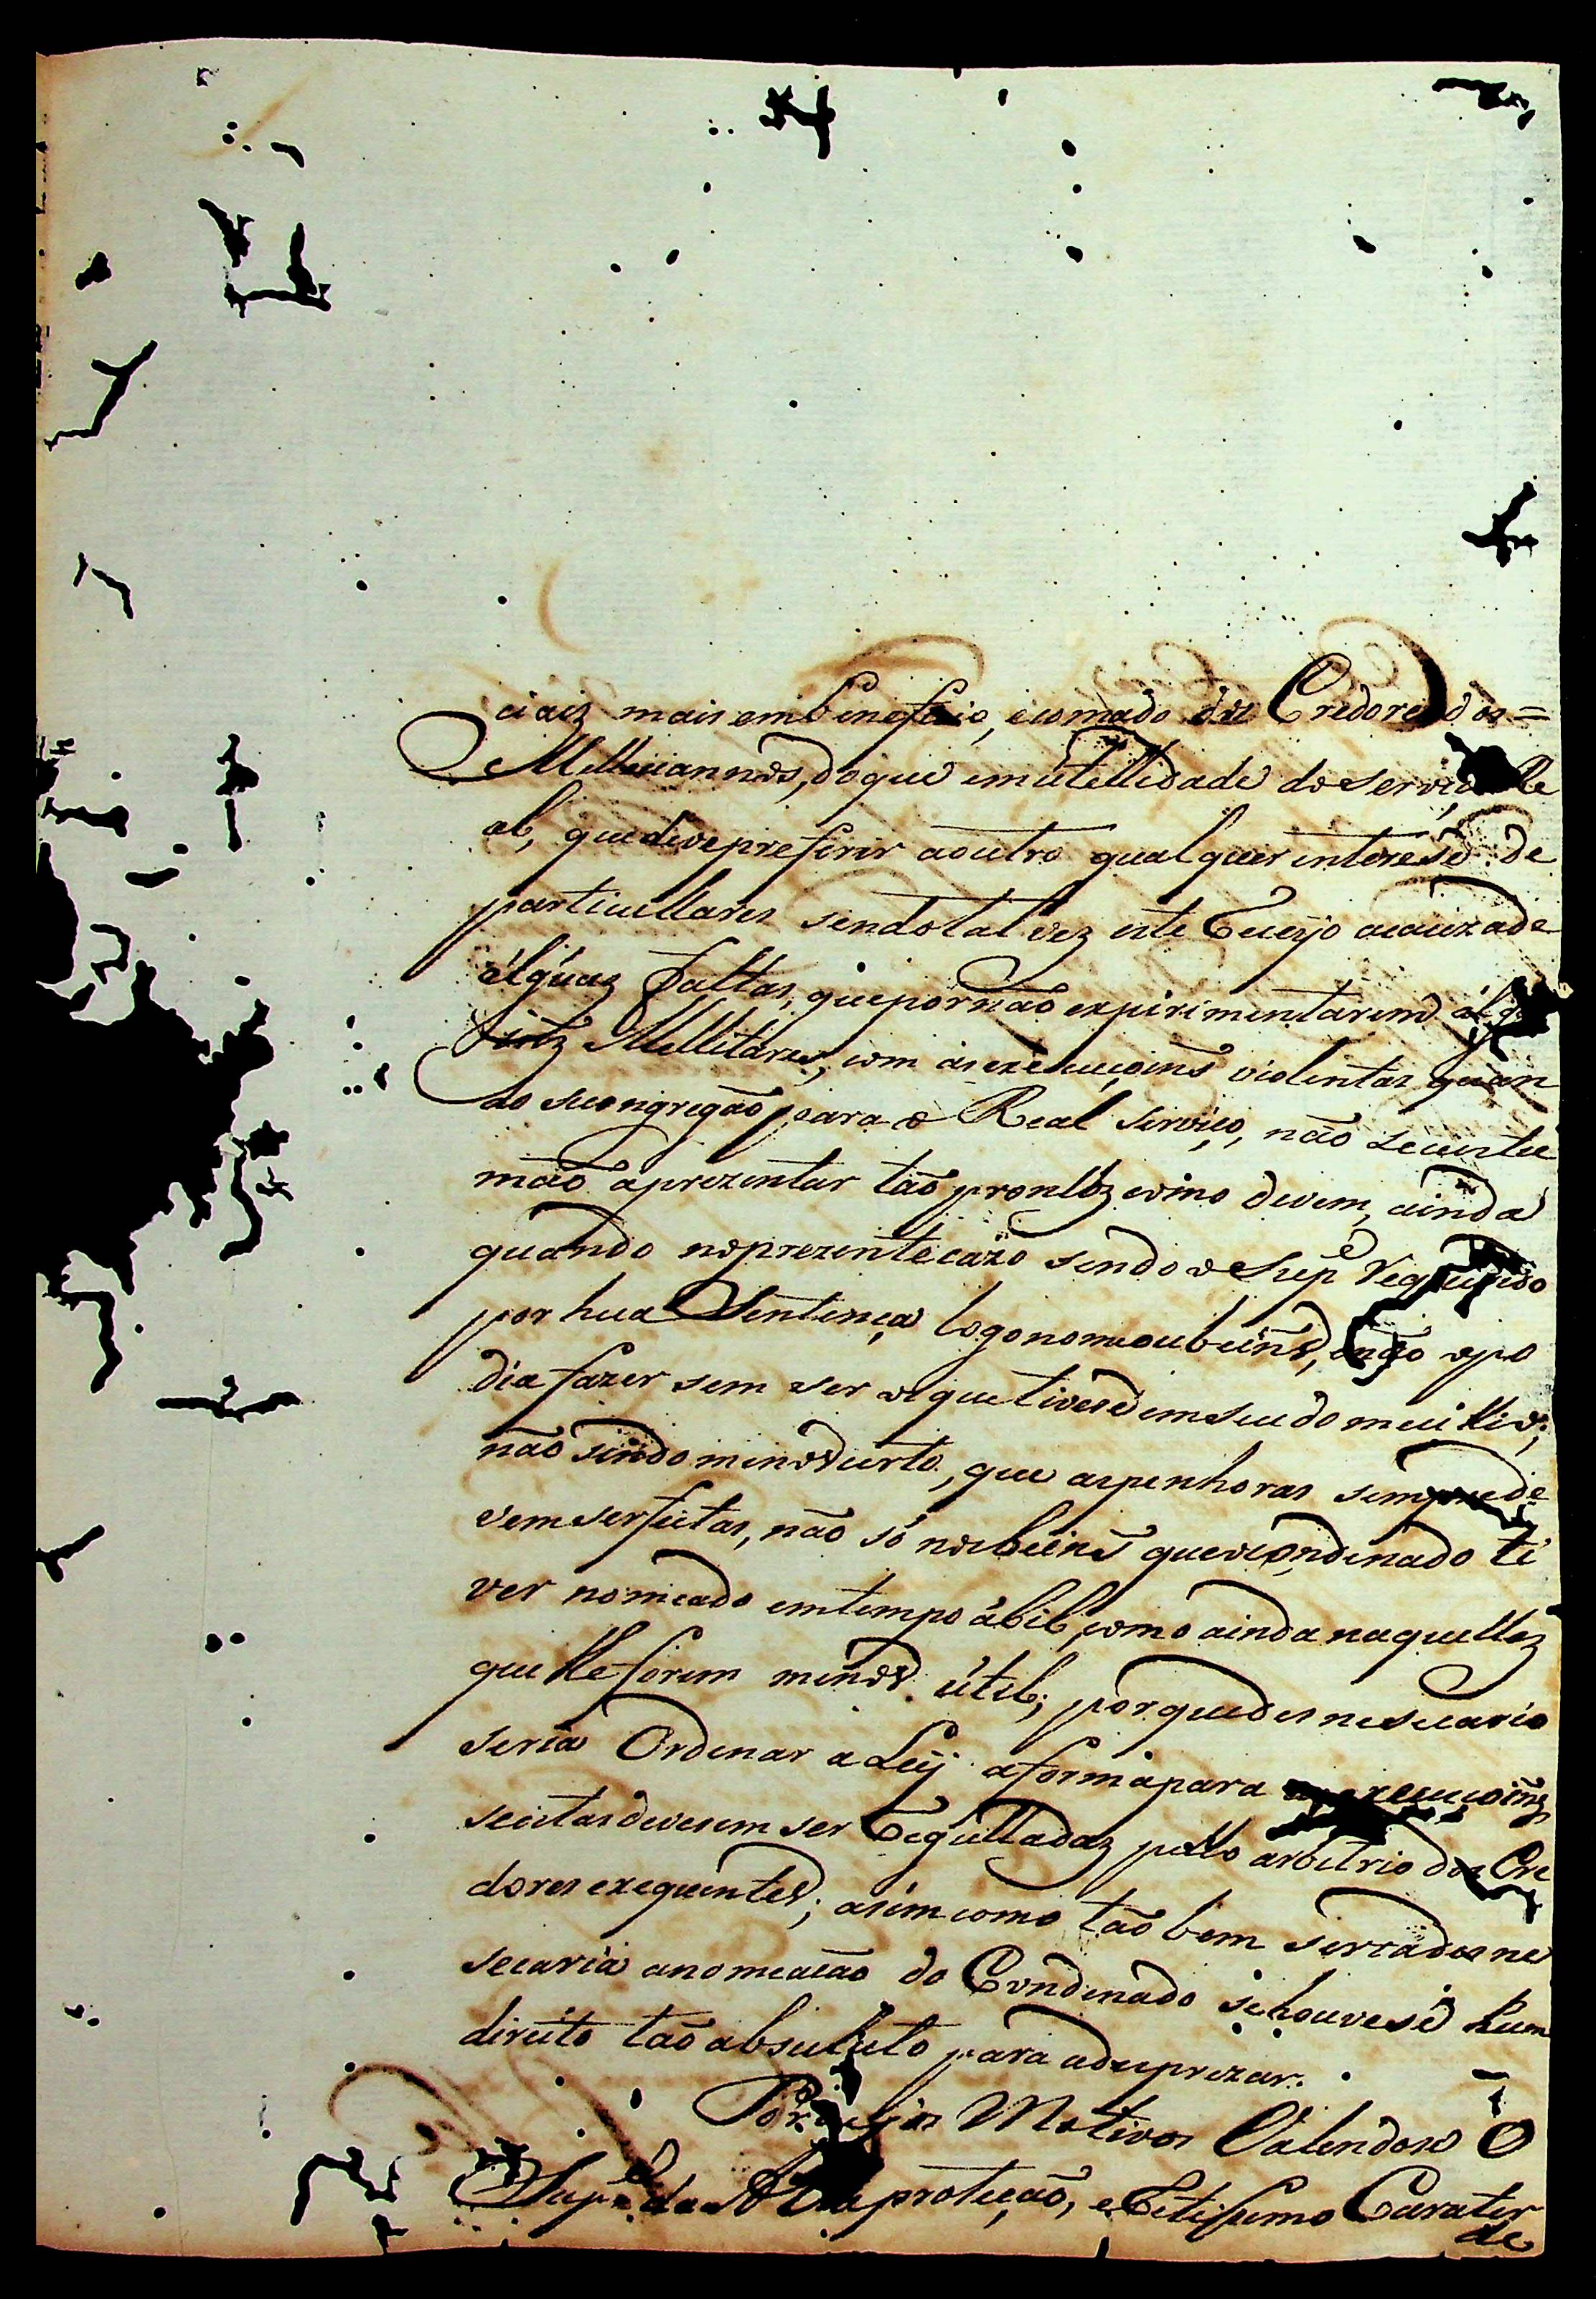 ciaiz mais em beneficio, ecomodo doz Credores dos=
Milliciannos, doque em utellidade do serviço Re
al, que deve preferir a outro qualquer interese de
particullares sendo tal vez este Receyo acauza de
álgúas faltas, que por não expirimentarem
Millitares, com as execuçoins violentas quan
do se congregão para o Real serviço, não se custu
mão aprezentar tão prontoz como devem, ainda
quando no prezente cazo sendo o Sup.e Requerido
por hua Sentença logo nomeou beins, enão o po
dia fazer sem ser o que tivese em seu domeiclio;
não sendo menos certo, que as penhoras sempre de
vem ser feitas, não só nos beins que o condenado ti
ver nomeado em tempo ábil, como ainda naquelloz
que lle forem menos útil; porque desnesecario
seria Ordenar a Ley a forma para as execuçoins
se estas devesem ser Regulladaz pello arbitrio dos Cre
dores exequentes; asim como tão bem seria desne
secaria anomeacão do Condenado se houvese hum
direito tão absuluto para adesprezar.
Por cujos Motivos Valendose O
Sup.e da Alta proteção, e Retissimo Carater
de